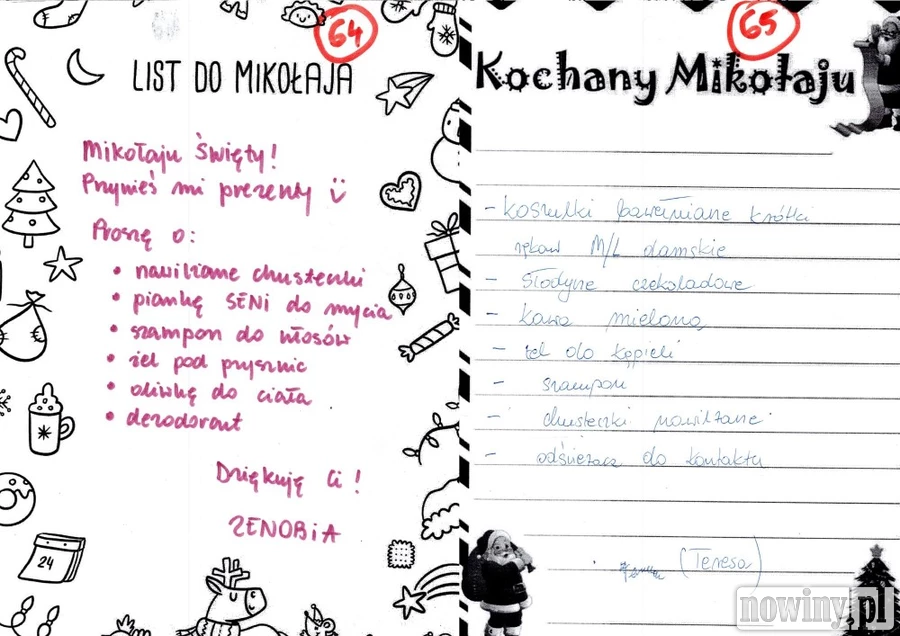 64
LIST DO MIKOŁAJA
Mikołaju Święty!
Przynieś mi prezenty
Proszę o:
• nawilżane chusteczki
• piankę SENI do mycia
• szampon do włosów
• żel pod prysznic
• oliwkę do ciała
• dezodorant
Dziękuję Ci!
ZENOBiA
24
65
Kochany Mikołaju
- koszulki bawełniane krótki
rękaw M/L damskie
- słodycze czekoladowe
- kawa mielona
- żel do kąpieli
- szampon
- chusteczki nawilżane
- odświeżacz do kontaktu
(Teresa)
nowiny.pl